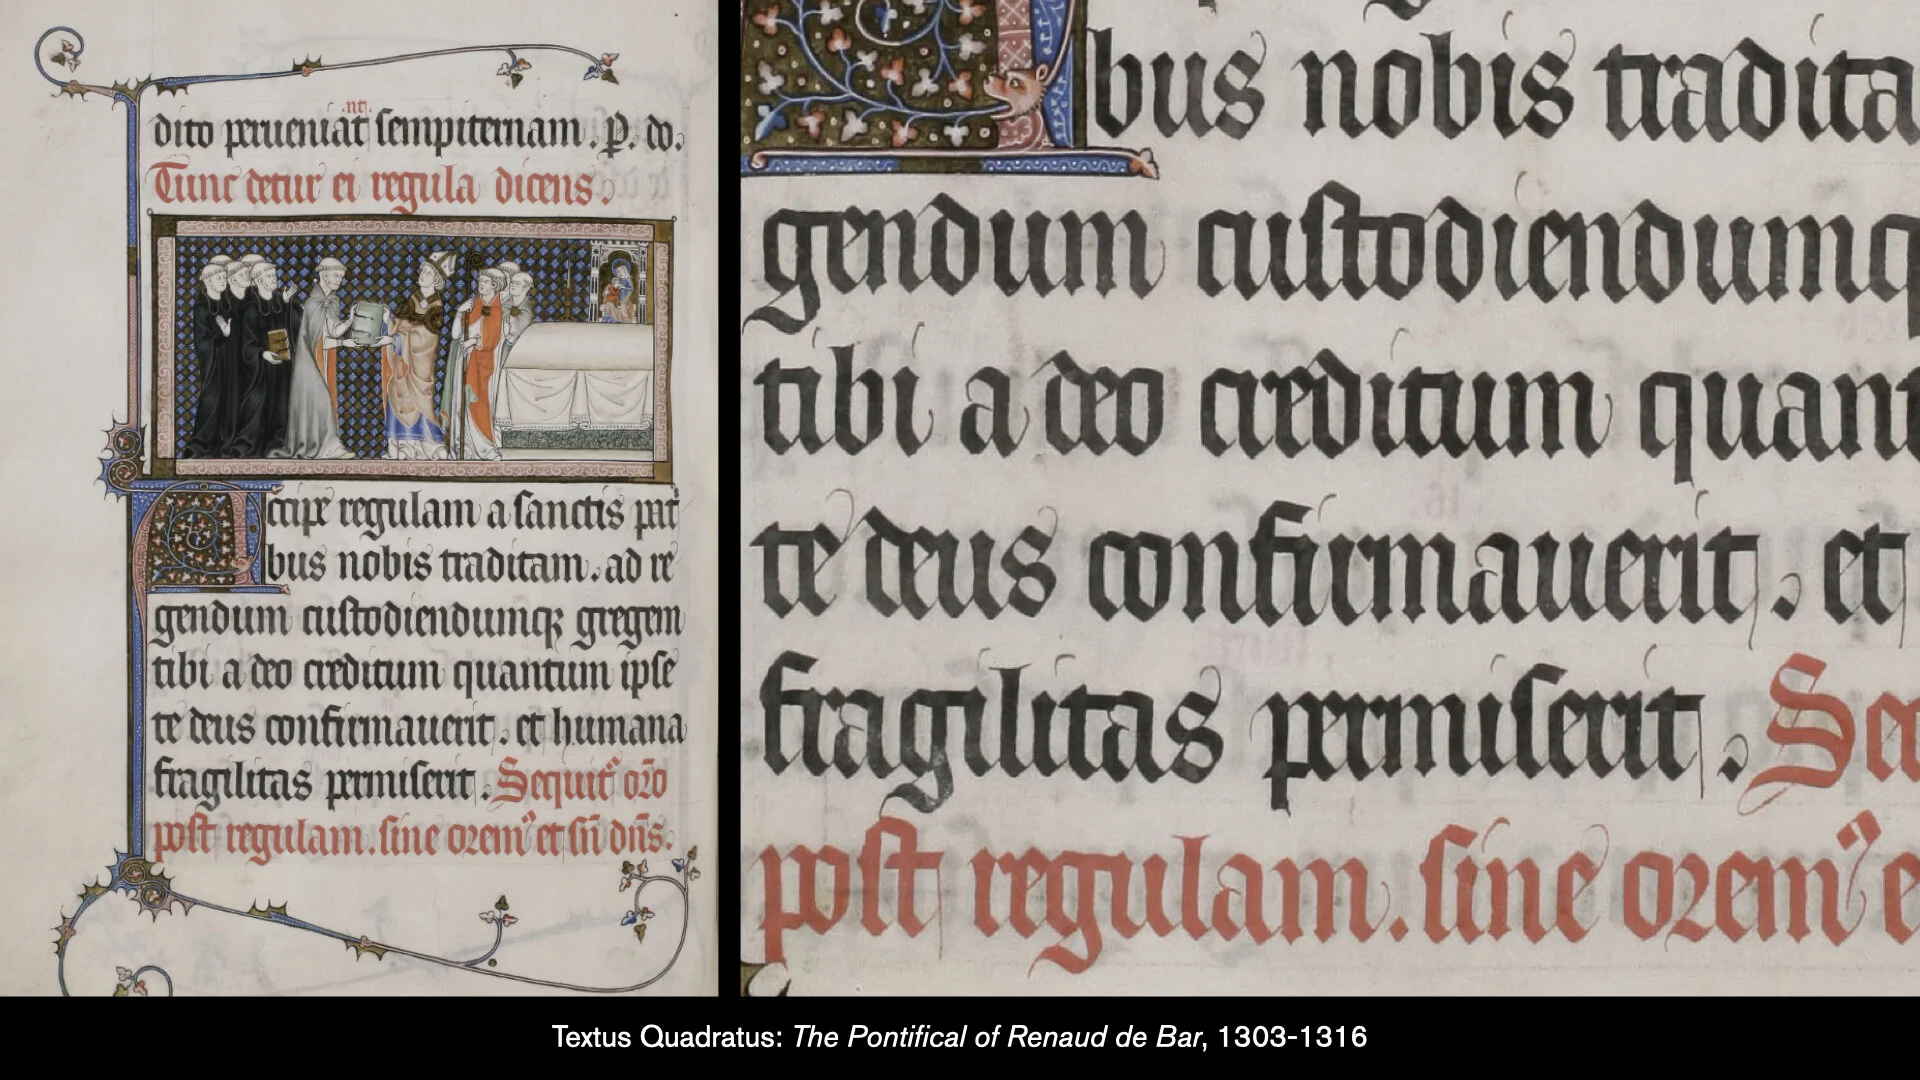 .nt.
dito perueniat sempiternam . P. do.
Tunc detur ei regula dicens .
Accipe regulam a sanctis pat
bus nobis traditam . ad re
gendum custodiendumqꝫ gregem
tibi a deo creditum quantum ipse
te deus confirmauerit . et humana
fragilitas permiserit . Sequit᷑ or̄o
post regulam . sine orem᷒ et sn̄ dn̄s .
bus nobis tradita
gendum custodiendumq
tibi a deo creditum quant
te deus confirmauerit . et
fragilitas permiserit . Se
post regulam . sine orem᷒ e
Textus Quadratus: The Pontifical of Renaud de Bar, 1303-1316